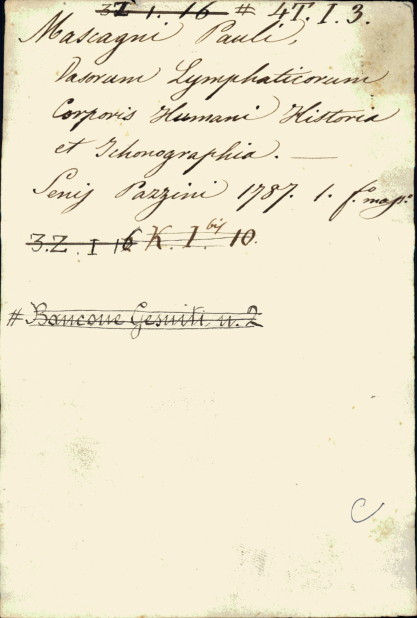 3 I 1. 16 # 4T. I. 3.
Mascagni Pauli,
Vasorum Lymphaticorum
Corporis Humani Historia
et Ichonographia. —
Senis Pazzini 1787. 1. f.º mass:
3. Z. I 16 K. I. bis 10.
# Bancone Gesuiti n. 2
C